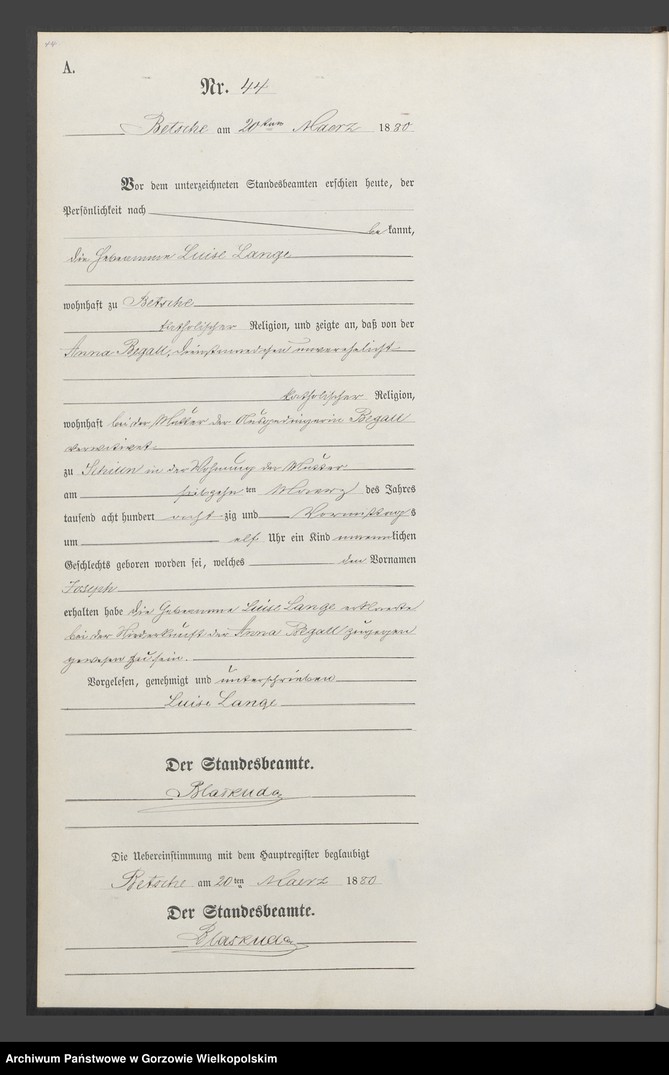 44
A.
Nr. 44
Betsche am 20ten Maerz 1880
Vor dem unterzeichneten Standesbeamten erschien heute, der
Persönlichkeit nach
be kannt,
die Hebeamme Luise Lange
wohnhaft zu Betsche
katholischer Religion, und zeigte an, daß von der
Anna Begall, Dienstmädchen unverehelicht
katholischer Religion,
wohnhaft bei der Mutter der Ausgedingerin Begall
verwitwet
zu Schilln in der Wohnung der Mutter
am ten Maerz des Jahres
tausend acht hundert acht zig und Vormittags
um elf Uhr ein Kind maennlichen
Geschlechts geboren worden sei, welches den Vornamen
Joseph
erhalten habe die Hebeamme Luise Lange erklaerte
bei der Niederkunft der Anna Begall zugegen
gewesen zu sein.
Vorgelesen, genehmigt und unterschrieben
Luise Lange
Der Standesbeamte.
Blaskuda
Die Uebereinstimmung mit dem Hauptregister beglaubigt
Betsche am 20ten Maerz 1880
Der Standesbeamte.
Blaskuda
Archiwum Państwowe w Gorzowie Wielkopolskim